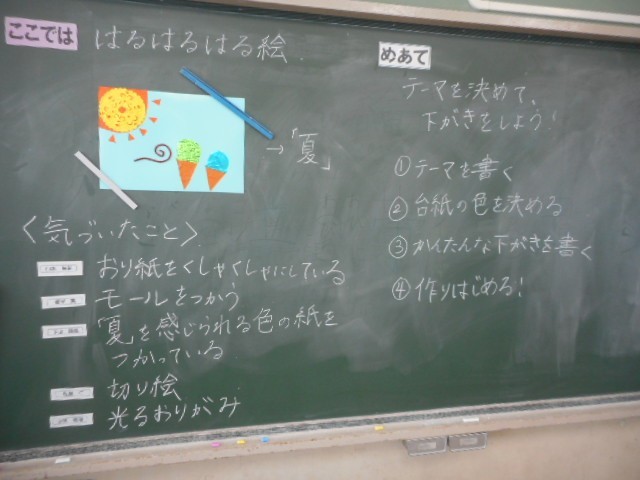 ここでは
はるはるはる絵
→「夏」
〈気づいたこと〉
おり紙をくしゃくしゃにしている
モールをつかう
「夏」を感じられる色の紙を
つかっている
切り絵
光るおりがみ
めあて
テーマを決めて、
下がきをしよう!
①テーマを書く
②台紙の色を決める
③かんたんな下がきを書く
④作りはじめる!